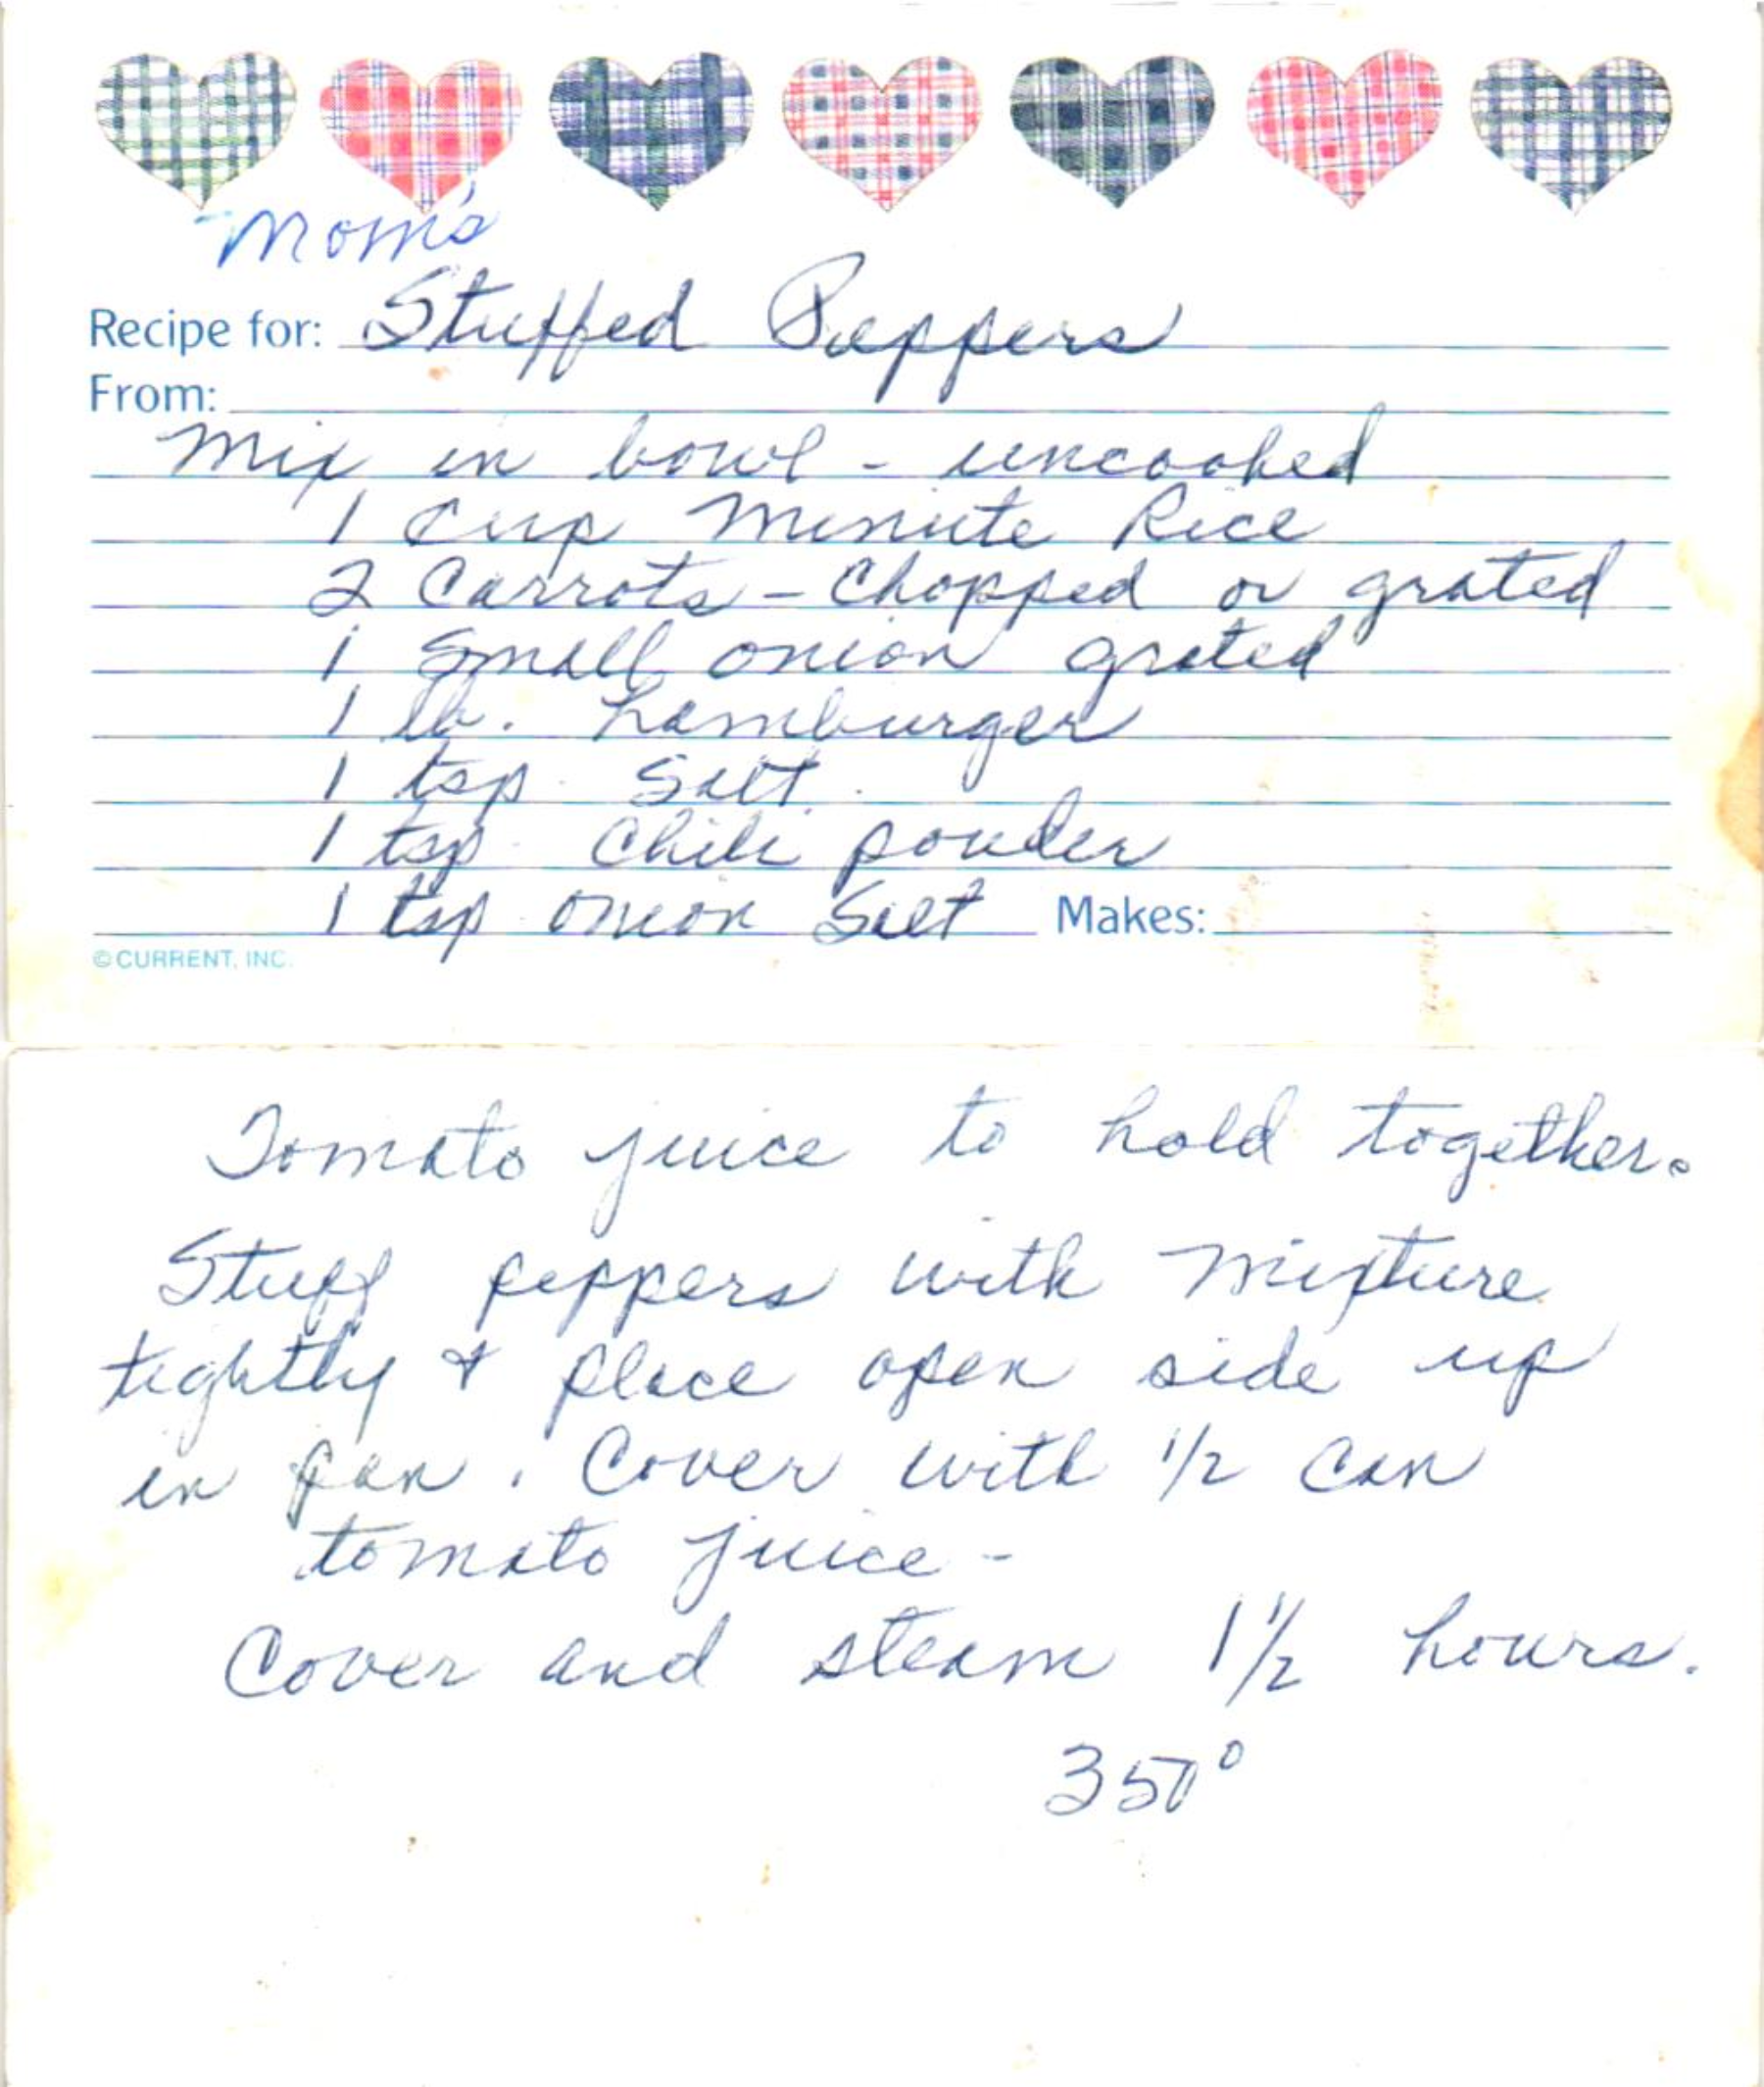 Mom's
Recipe for: Stuffed Peppers
From:
Mix in bowl - uncooked
1 cup Minute Rice
2 Carrots - Chopped or grated
1 small onion grated
1 lb. hamburger
1 tsp. Salt.
1 tsp. Chili powder
1 tsp. onion Salt Makes:
© CURRENT, INC.
Tomato juice to hold together.
Stuff peppers with mixture
tightly & place open side up
in pan. Cover with 1/2 can
tomato juice -
Cover and steam 1 1/2 hours.
350°